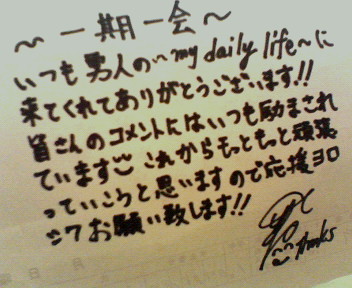 ～一期一会～
いつも男人の～my daily life～に
来てくれてありがとうございます!!
皆さんのコメントにはいつも励まされ
ています これからもっともっと頑張
っていこうと思いますので応援ヨロ
シクお願い致します!!
thanks